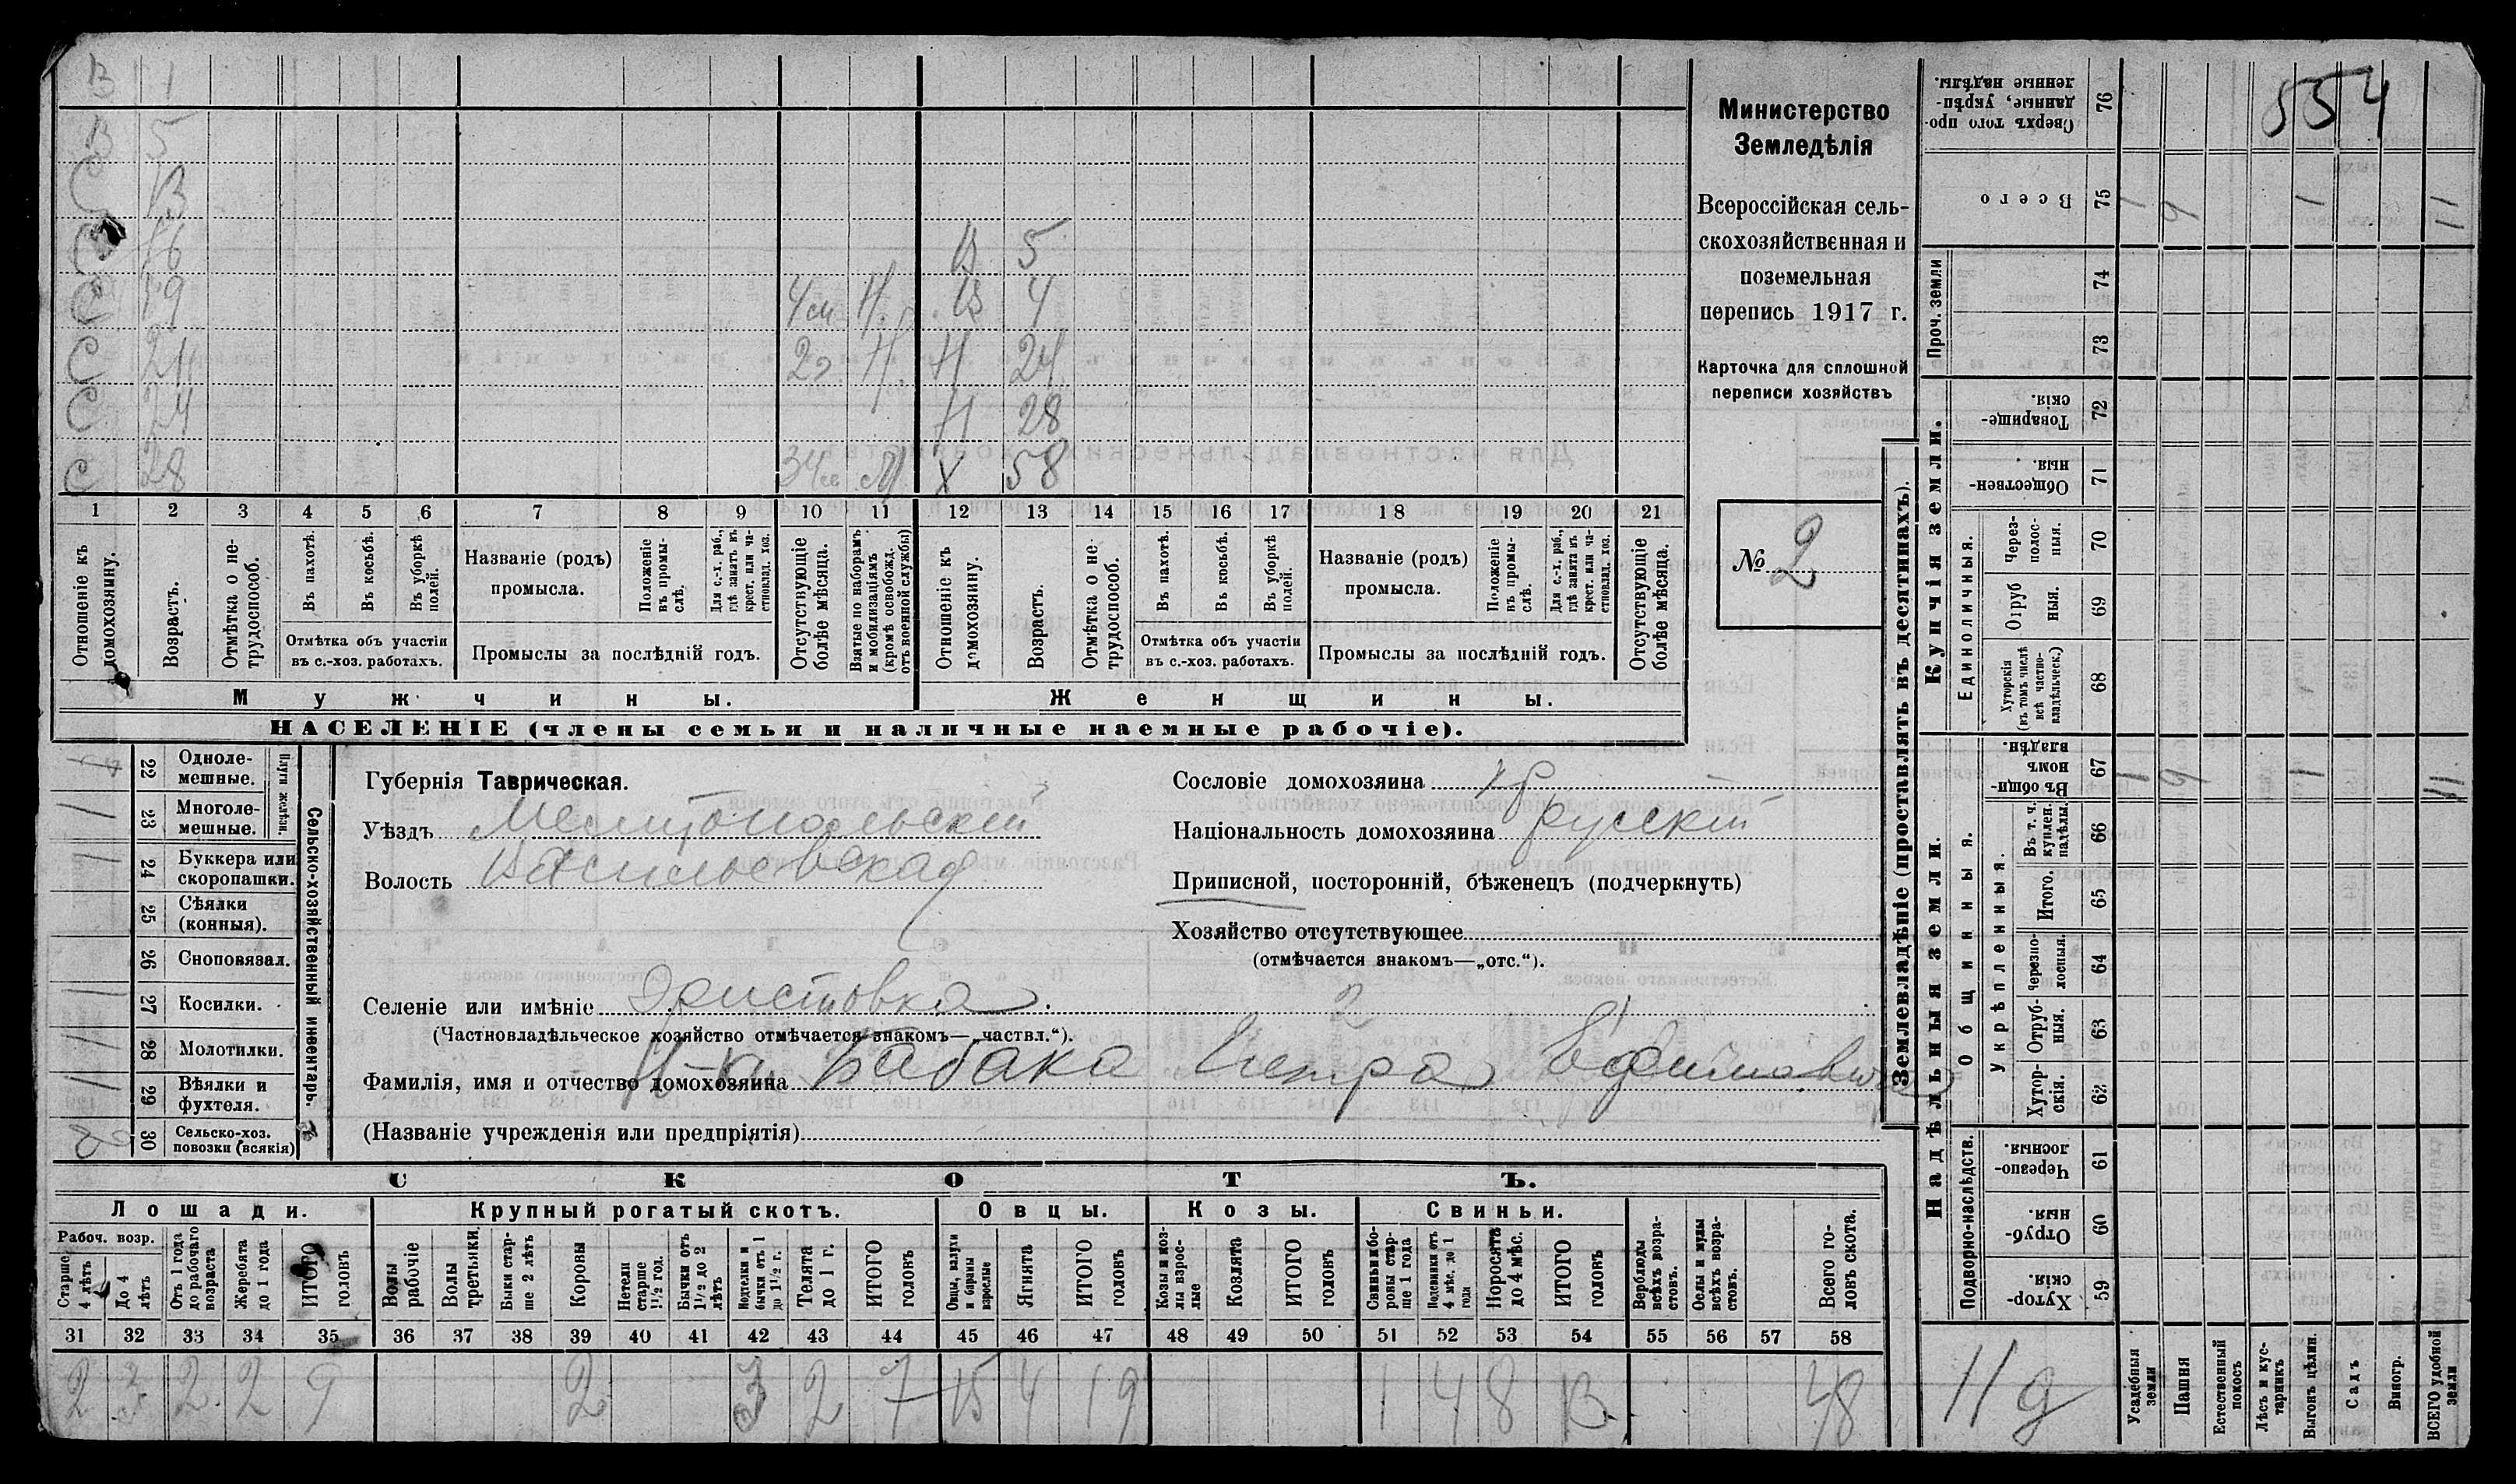 В 1
В 5
С 13
С 16 В 5
С 19 4 м Н. В 4
С 24 2 г. Н. Н 24
С 24 Н 28
С 28 М. Х 58
1 2 3 4 5 6 7 8 9 10 11 12 13 14 15 16 17 18 19 20 21
Отношеніе къ домохозяину.
Возрастъ.
Отмѣтка о не-
трудоспособ.
Въ пахотѣ.
Въ косьбѣ.
Въ уборкѣ
полей.
Отмѣтка объ участіи
въ с.-хоз. работахъ.
Названіе (родъ)
промысла.
Положеніе
въ промы-
слѣ.
Для с.-х. раб.,
гдѣ занятъ въ
крест. или ча-
стновлад. хоз.
Промыслы за послѣдній годъ.
Отсутствующіе
болѣе мѣсяца.
Взятые по наборамъ
и мобилизаціямъ
(кромѣ освобожд.
отъ военной службы)
Отношеніе къ
домохозяину.
Возрастъ.
Отмѣтка о не
трудоспособ.
Въ пахотѣ.
Въ косьбѣ.
Въ уборкѣ
полей.
Отмѣтка объ участіи
въ с.-хоз. работахъ.
Названіе (родъ)
промысла.
Положеніе
въ промы-
слѣ.
Для с.-х. раб.,
гдѣ занята въ
крест. или ча-
стновлад. хоз.
Промыслы за послѣдній годъ.
Отсутствующіе
болѣе мѣсяца.
Мужчины.
Женщины.
НАСЕЛЕНІЕ (члены семьи и наличные наемные рабочіе).
Министерство
Земледѣлія
Всероссійская сель-
скохозяйственная и
поземельная
перепись 1917 г.
Карточка для сплошной
переписи хозяйствъ
№ 2
22 Одноле-
мешные.
23 Многоле-
мешные.
Плуги желѣзн.
24 Буккера или
скоропашки.
25 Сѣялки
(конныя).
26 Сноповязал.
27 Косилки.
28 Молотилки.
29 Вѣялки и
фухтеля.
30 Сельско-хоз.
повозки (всякія)
Сельско-хозяйственный инвентарь.
Губернія Таврическая.
Уѣздъ Мелитопольскій
Волость Васильевская
Сословіе домохозяина кр
Національность домохозяина русскій
Приписной, посторонній, бѣженецъ (подчеркнуть)
Хозяйство отсутствующее
(отмѣчается знакомъ—„отс.“).
Селеніе или имѣніе Эристовка. 2
(Частновладѣльческое хозяйство отмѣчается знакомъ—„частвл.“).
Фамилія, имя и отчество домохозяина Н-ки Бабака Петра Ефимовича
(Названіе учрежденія или предпріятія)
СКОТЪ.
Лошади. Крупный рогатый скотъ. Овцы. Козы. Свиньи.
Рабоч. возр.
Старше
4 лѣтъ
До 4
лѣтъ
Отъ 1 года
до рабочаго
возраста
Жеребята
до 1 года
ИТОГО
головъ
Волы
рабочіе
Волы
третьяки.
Быки стар-
ше 2 лѣтъ
Коровы
Нетели
старше
1 1/2 год.
Бычки отъ
1 1/2 до 2
лѣтъ
Подтелки и
бычки отъ 1
до 1 1/2 г.
Телята
до 1 г.
ИТОГО
головъ
Овцы, валухи
и бараны
взрослые
Ягнята
ИТОГО
головъ
Козы и коз-
лы взрос-
лые
Козлята
ИТОГО
головъ
Свиньи и бо-
ровы стар-
ше 1 года
Подсвинки отъ
4 мѣс. до 1
года
Поросята
до 4 мѣс.
ИТОГО
головъ
Верблюды
всѣхъ возра-
стовъ.
Ослы и мулы
всѣхъ возра-
стовъ.
Всего го-
ловъ скота.
31 32 33 34 35 36 37 38 39 40 41 42 43 44 45 46 47 48 49 50 51 52 53 54 55 56 57 58
2 3 2 2 9 2 3 2 7 15 4 19 1 4 8 13 48
Землевладѣніе (проставлять въ десятинахъ).
Купчія земли.
Надѣльныя земли.
554
Сверхъ того про-
данные, укрѣп-
ленные надѣлы. 76
Всего 75 1 9 1 11
Проч. земли 74
73
Товарище-
скія. 72
Обществен-
ныя. 71
Единоличныя.
Через-
полос-
ныя. 70
Отруб
ныя. 69
Хуторскія
(въ томъ числѣ
всѣ частно-
владѣльческ.) 68
Въ общи-
номъ
владѣн. 67 1 9 1 11
Общинныя.
Укрѣпленныя.
Въ т. ч.
куплен.
надѣлы. 66
Итого. 65
Черезпо-
лосныя. 64
Отруб-
ныя. 63
Хутор-
скія. 62
Подворно-наслѣдств.
Черезпо-
лосныя 61
Отруб-
ныя. 60
Хутор-
скія. 59
11 д
Усадебныя
земли
Пашня
Естественный
покосъ
Лѣсъ и кус-
тарникъ
Выгонъ цѣлин.
Садъ
Виногр.
ВСЕГО удобной
земли